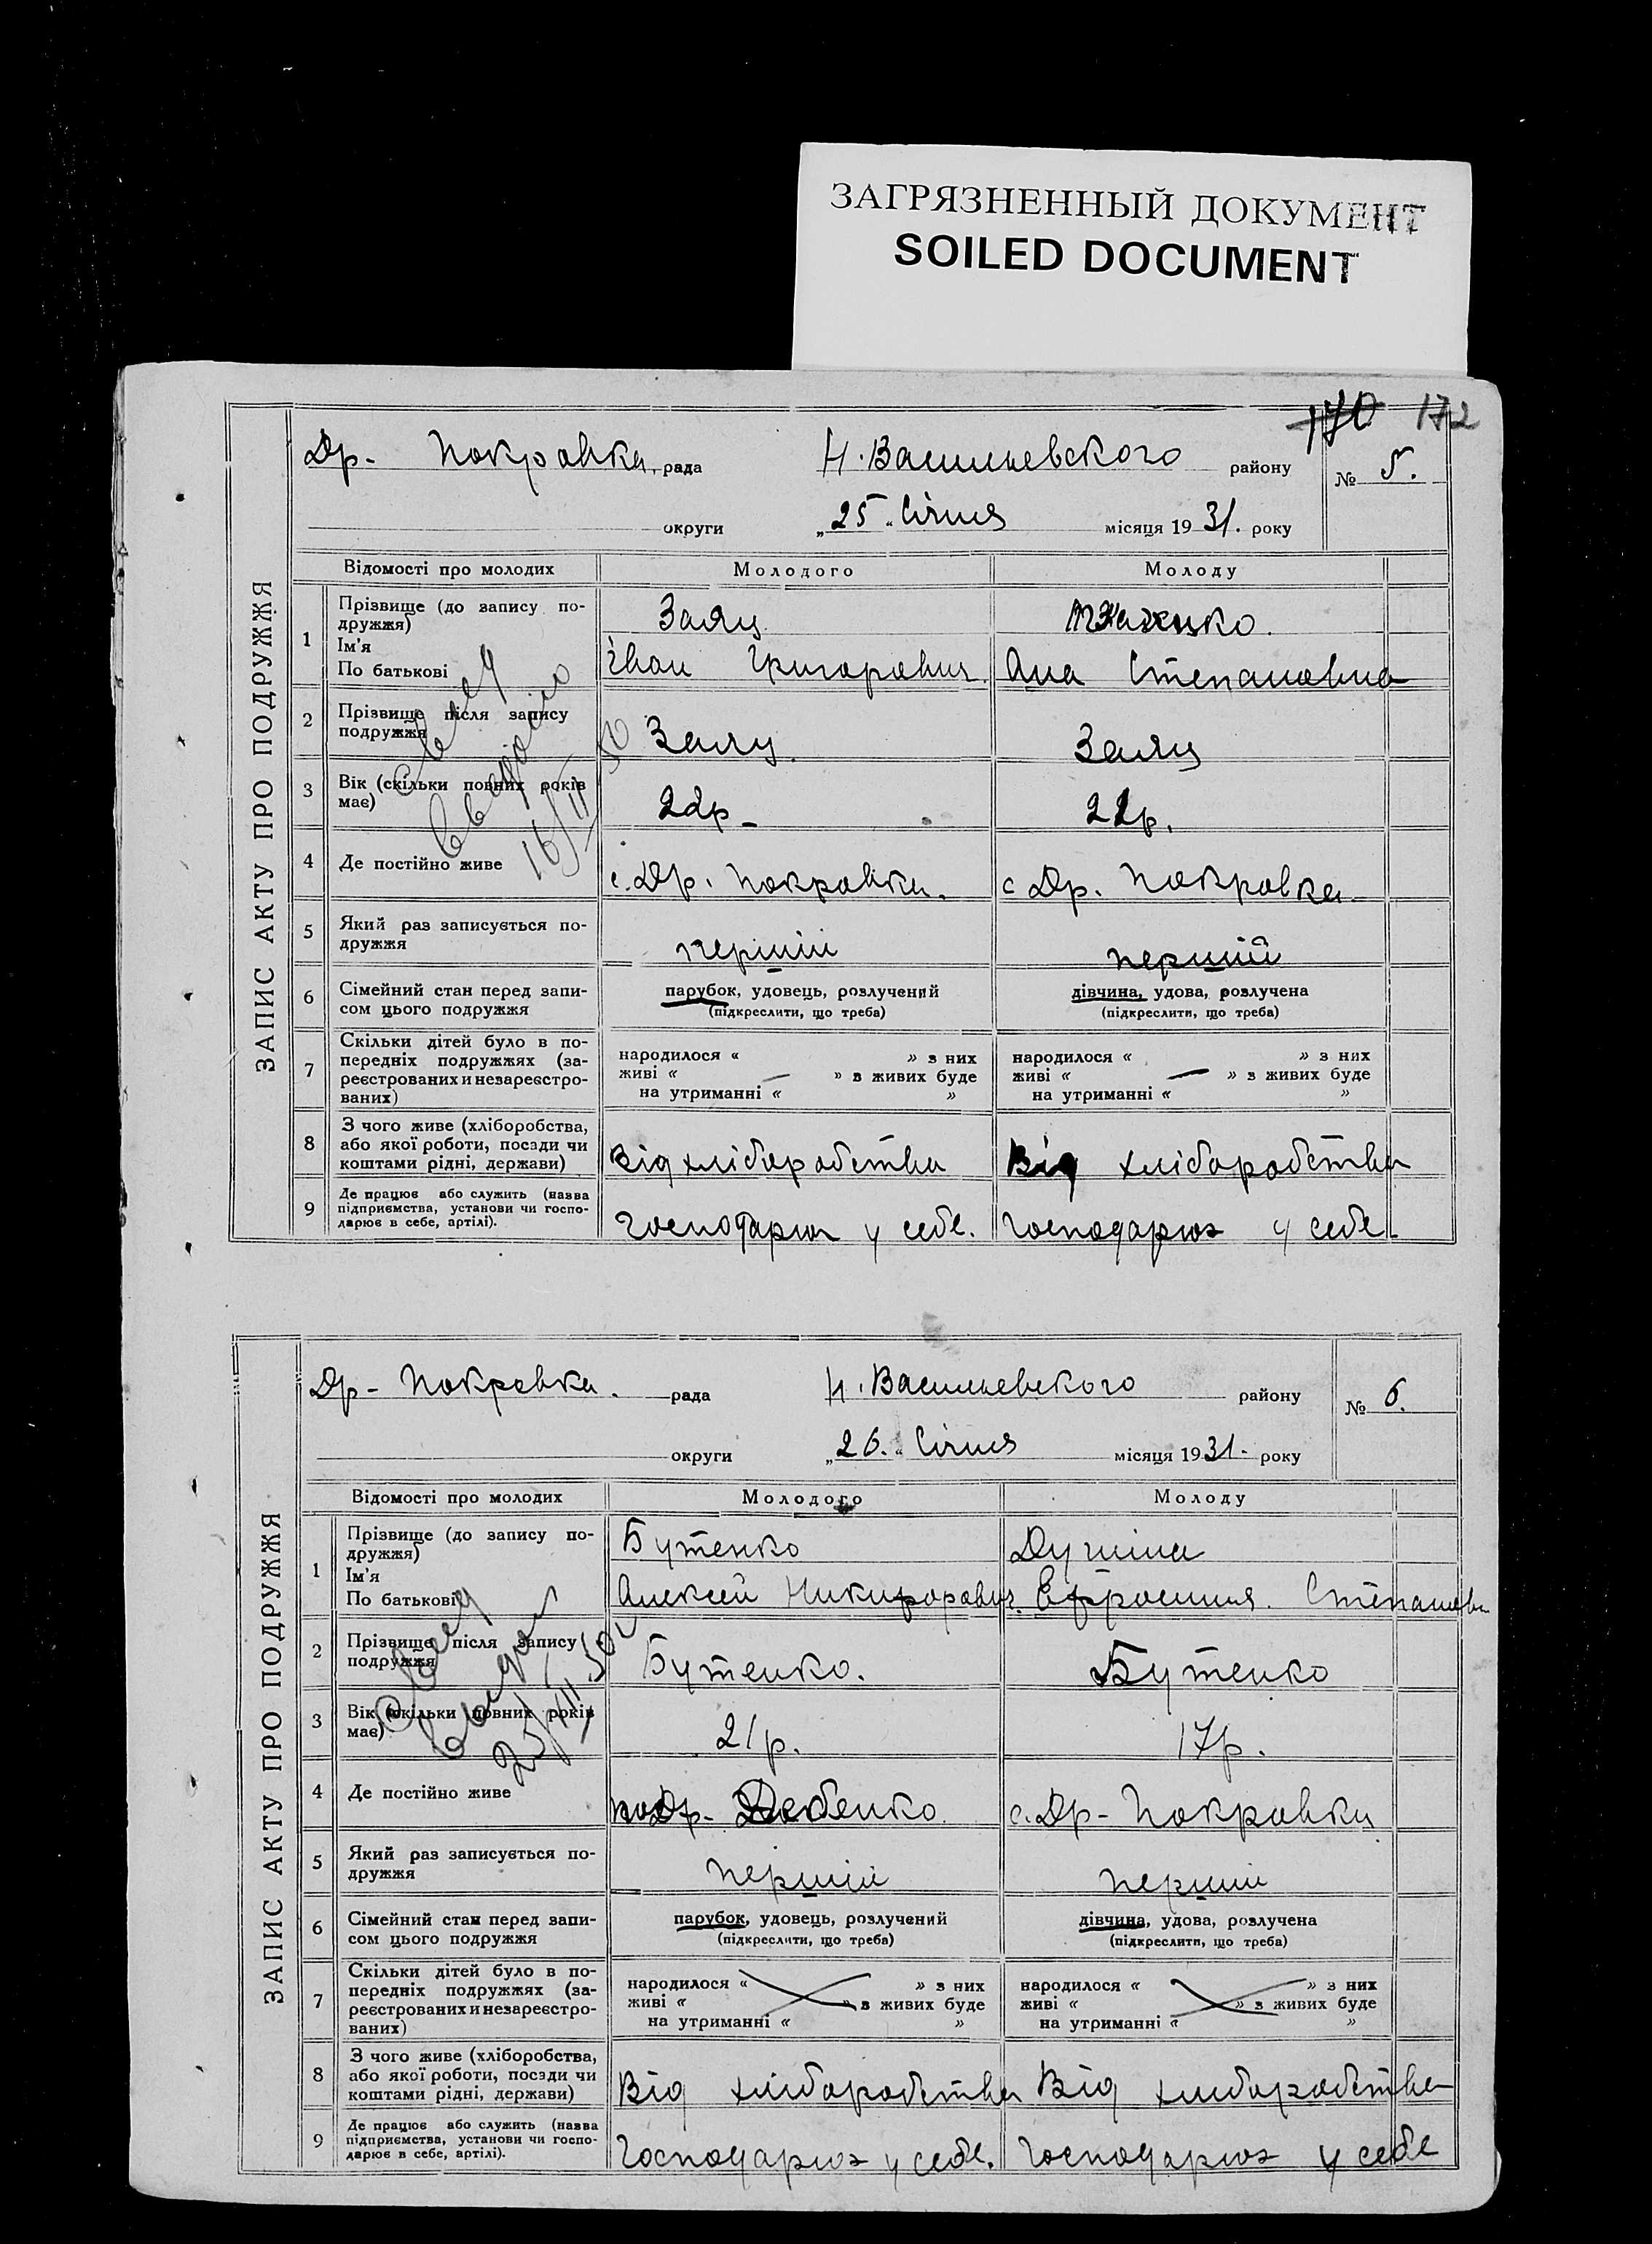 ЗАГРЯЗНЕННЫЙ ДОКУМЕНТ
SOILED DOCUMENT
170 172
ЗАПИС АКТУ ПРО ПОДРУЖЖЯ
Др- Покровка, рада Н. Васильевского району № 5.
округи „25“ Січня місяця 1931. року
Відомості про молодих Молодого Молоду
1 Прізвище (до запису по-
дружжя) Заяц
Ім'я
По батькові Іван Григорович Ана Степановна
2 Прізвище після запису
подружжя Заяц. Заяц
3 Вік (скільки повних років
має) 22р- 22р.
16/II 50
4 Де постійно живе с. Др. Покровка. с Др. Покровка
5 Який раз записується по-
дружжя перший перший
6 Сімейний стан перед запи-
сом цього подружжя
парубок, удовець, розлучений
(підкреслити, що треба)
дівчина, удова, розлучена
(підкреслити, що треба)
7 Скільки дітей було в по-
передніх подружжях (за-
реєстрованих и незареєстро-
ваних)
народилося « » з них
живі « — » з живих буде
на утриманні « »
народилося « » з них
живі « — » з живих буде
на утриманні « »
8 З чого живе (хліборобства,
або якої роботи, посади чи
коштами рідні, держави) Від хліборобства Від хліборобства
9 Де працює або служить (назва
підприємства, установи чи госпо-
дарює в себе, артілі). у себе. у себе.
ЗАПИС АКТУ ПРО ПОДРУЖЖЯ
Др- Покровка. рада Н. Васильевского району № 6.
округи „26.“ Січня місяця 1931. року
Відомості про молодих Молодого Молоду
1 Прізвище (до запису по-
дружжя) Бутенко
Ім'я
По батькові Алексей Никифорович.
2 Прізвище після запису
подружжя Бутенко. Бутенко
3 Вік (скільки повних років
має) 21р. 17р.
4 Де постійно живе с. Др- Покровка
5 Який раз записується по-
дружжя перший перший
6 Сімейний стан перед запи-
сом цього подружжя
парубок, удовець, розлучений
(підкреслити, що треба)
дівчина, удова, розлучена
(підкреслити, що треба)
7 Скільки дітей було в по-
передніх подружжях (за-
реєстрованих и незареєстро-
ваних)
народилося « » з них
живі « » з живих буде
на утриманні « »
народилося « » з них
живі « » з живих буде
на утриманні « »
8 З чого живе (хліборобства,
або якої роботи, посади чи
коштами рідні, держави) Від хліборобства Від хліборобства
9 Де працює або служить (назва
підприємства, установи чи госпо-
дарює в себе, артілі). у себе. у себе